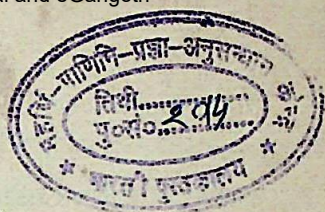 and eGangotri
महर्षि-पाणिनि-प्रज्ञा-अनुसन्धान
तिथी..............
पु०सं०..२१५..........
* भारती पुस्तकालय *